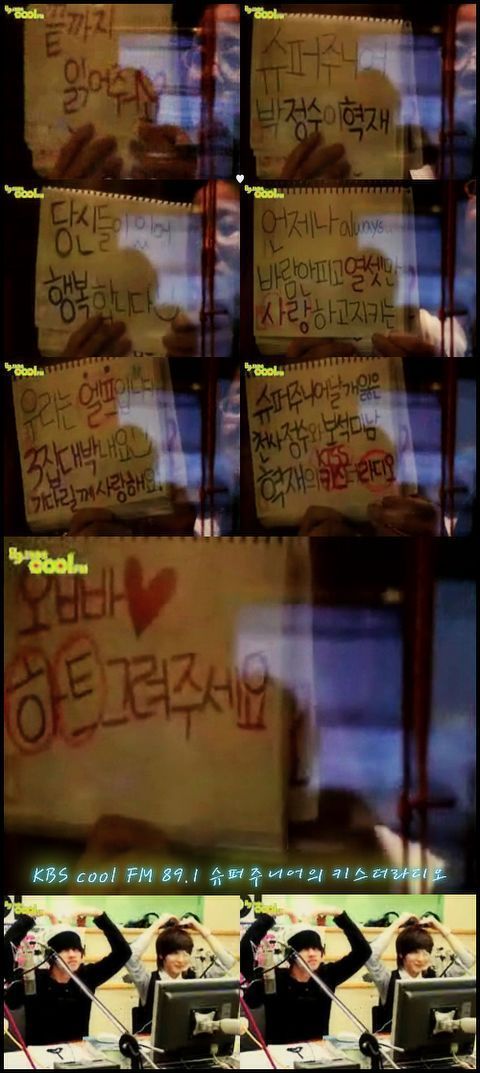 COOL FM
끝까지
읽어주세요
COOL FM
슈퍼주니어
박정수이혁재
COOL FM
당신들이 있어
행복합니다
COOL FM
언제나 always..
바람안피고 열셋만
사랑하고지키는
COOL FM
우리는 엘프입니다
3집대박내요
기다릴께사랑해요
COOL FM
슈퍼주니어날개잃은
천사정수와보석미남
혁재의
KISS
키스더라디오
COOL FM
오빠
하트그려주세요
KBS cool FM 89.1 슈퍼주니어의 키스더라디오
COOL FM
COOL FM